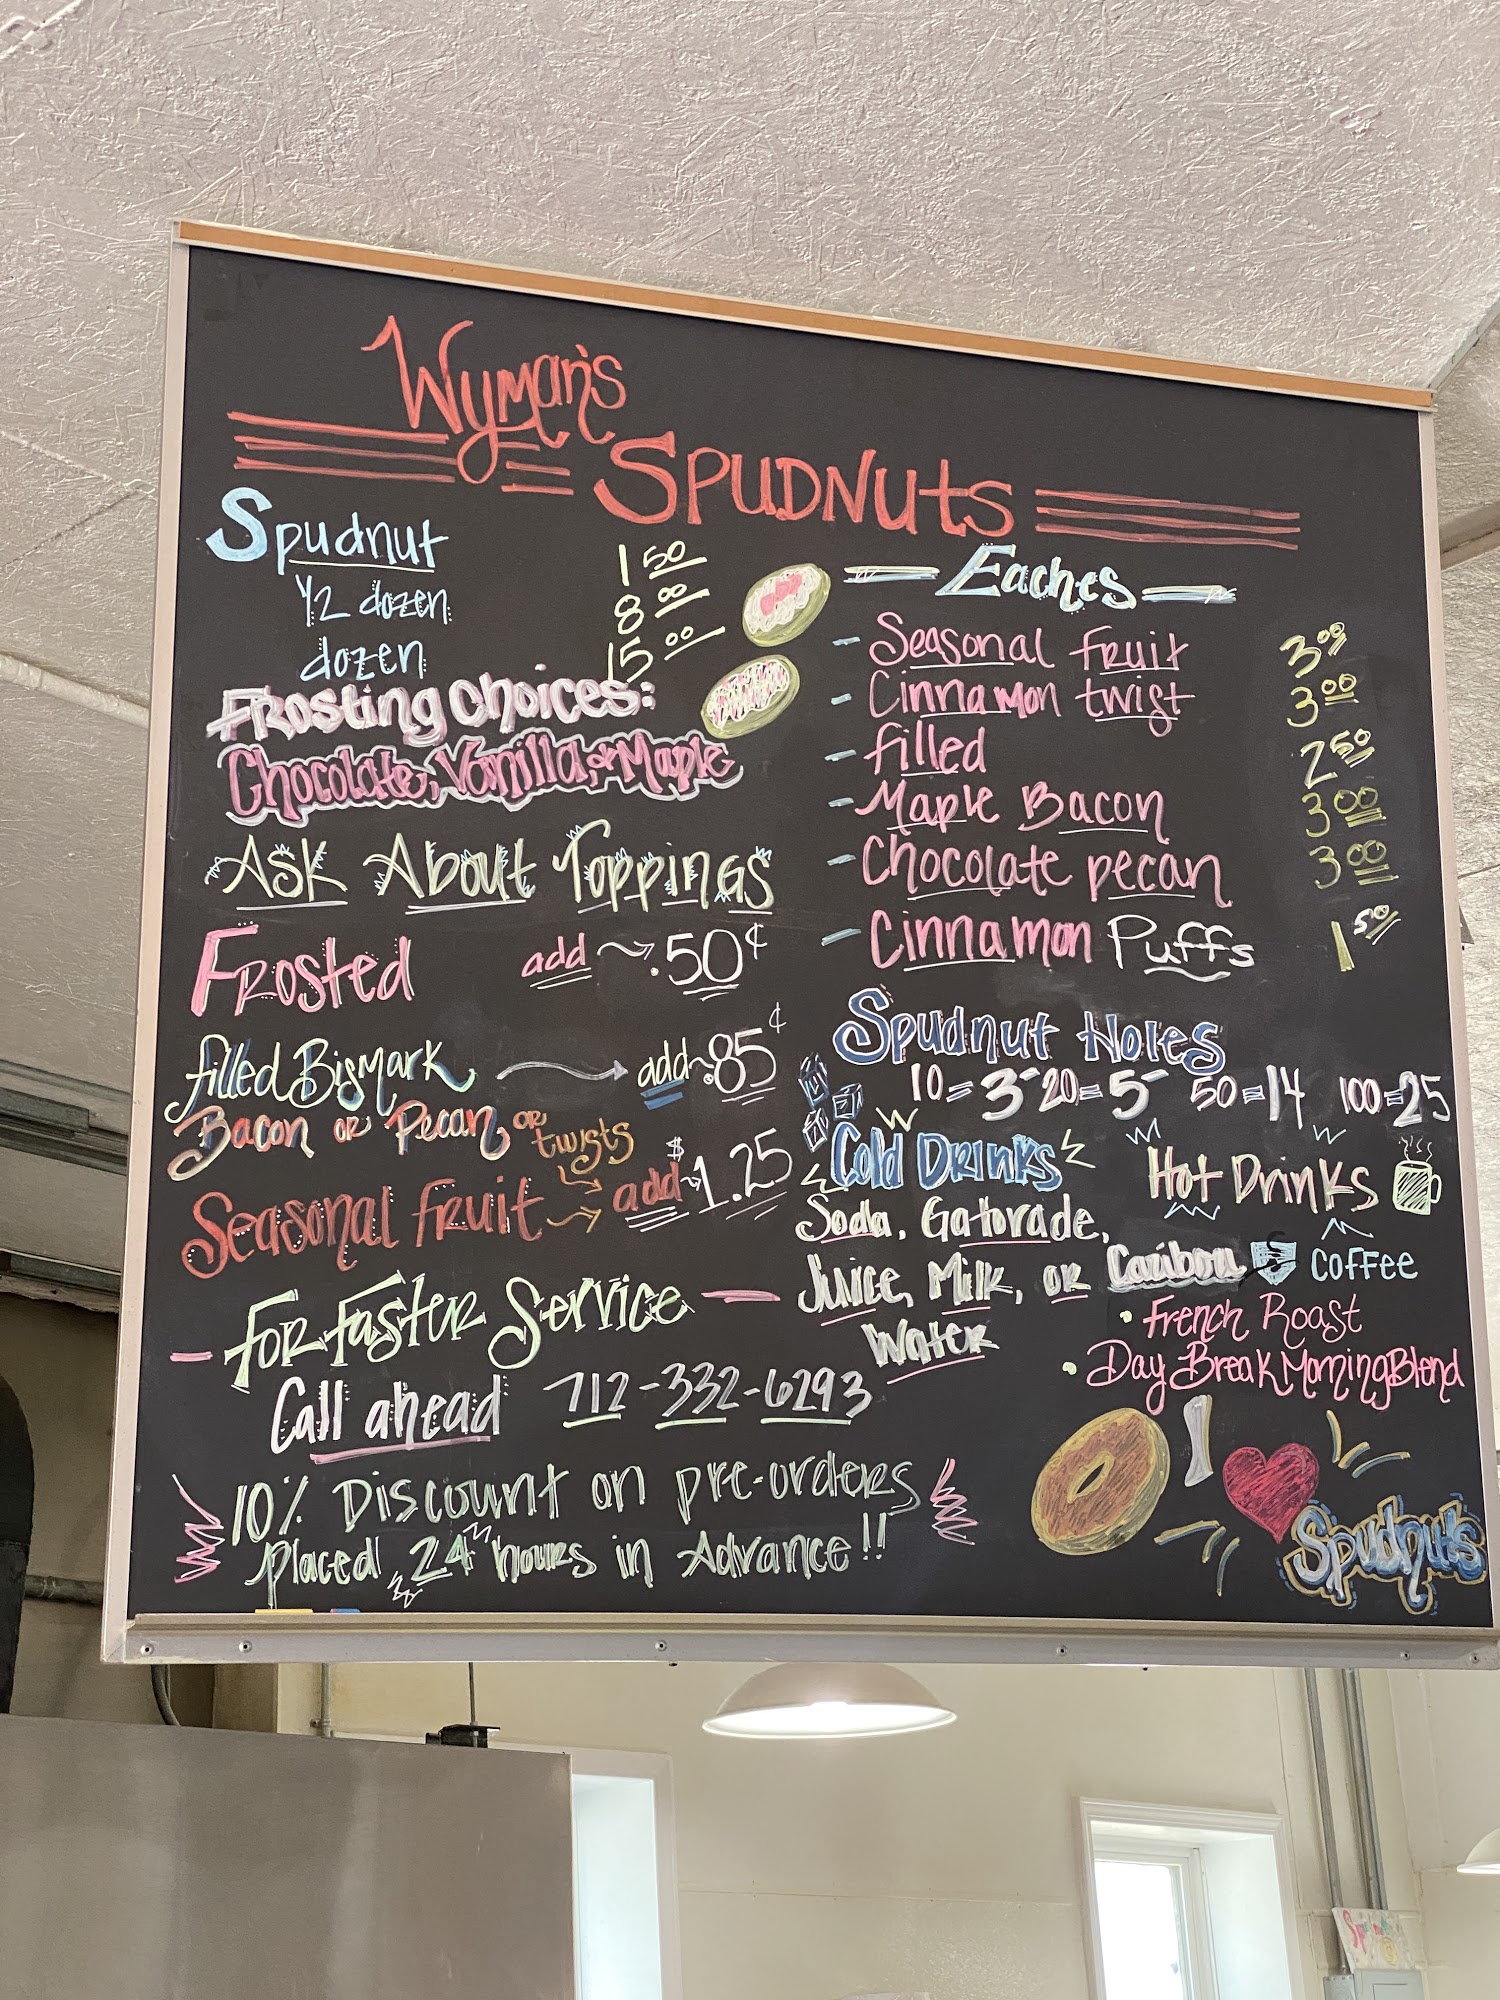 Wyman's
Spudnuts
Spudnut 1 50
1/2 dozen 8 00
dozen 15 00
Frosting Choices:
Chocolate, Vanilla, & Maple
Ask About Toppings
Frosted add .50¢
filled Bismark add .85¢
Bacon or Pecan, or twists
Seasonal Fruit add $1.25
For Faster Service
Call ahead 712-332-6293
10% Discount on pre-orders
placed 24 hours in Advance!!
Eaches
- Seasonal Fruit 3 00
- Cinnamon twist 3 00
- filled 2 50
- Maple Bacon 3 00
- Chocolate pecan 3 00
- Cinnamon Puffs 1 50
Spudnut Holes
10=3- 20=5- 50=14 100=25
Cold Drinks
Soda, Gatorade,
Juice, Milk, or
Water
Hot Drinks
Caribou Coffee
• French Roast
• Day Break Morning Blend
I
Spudnuts